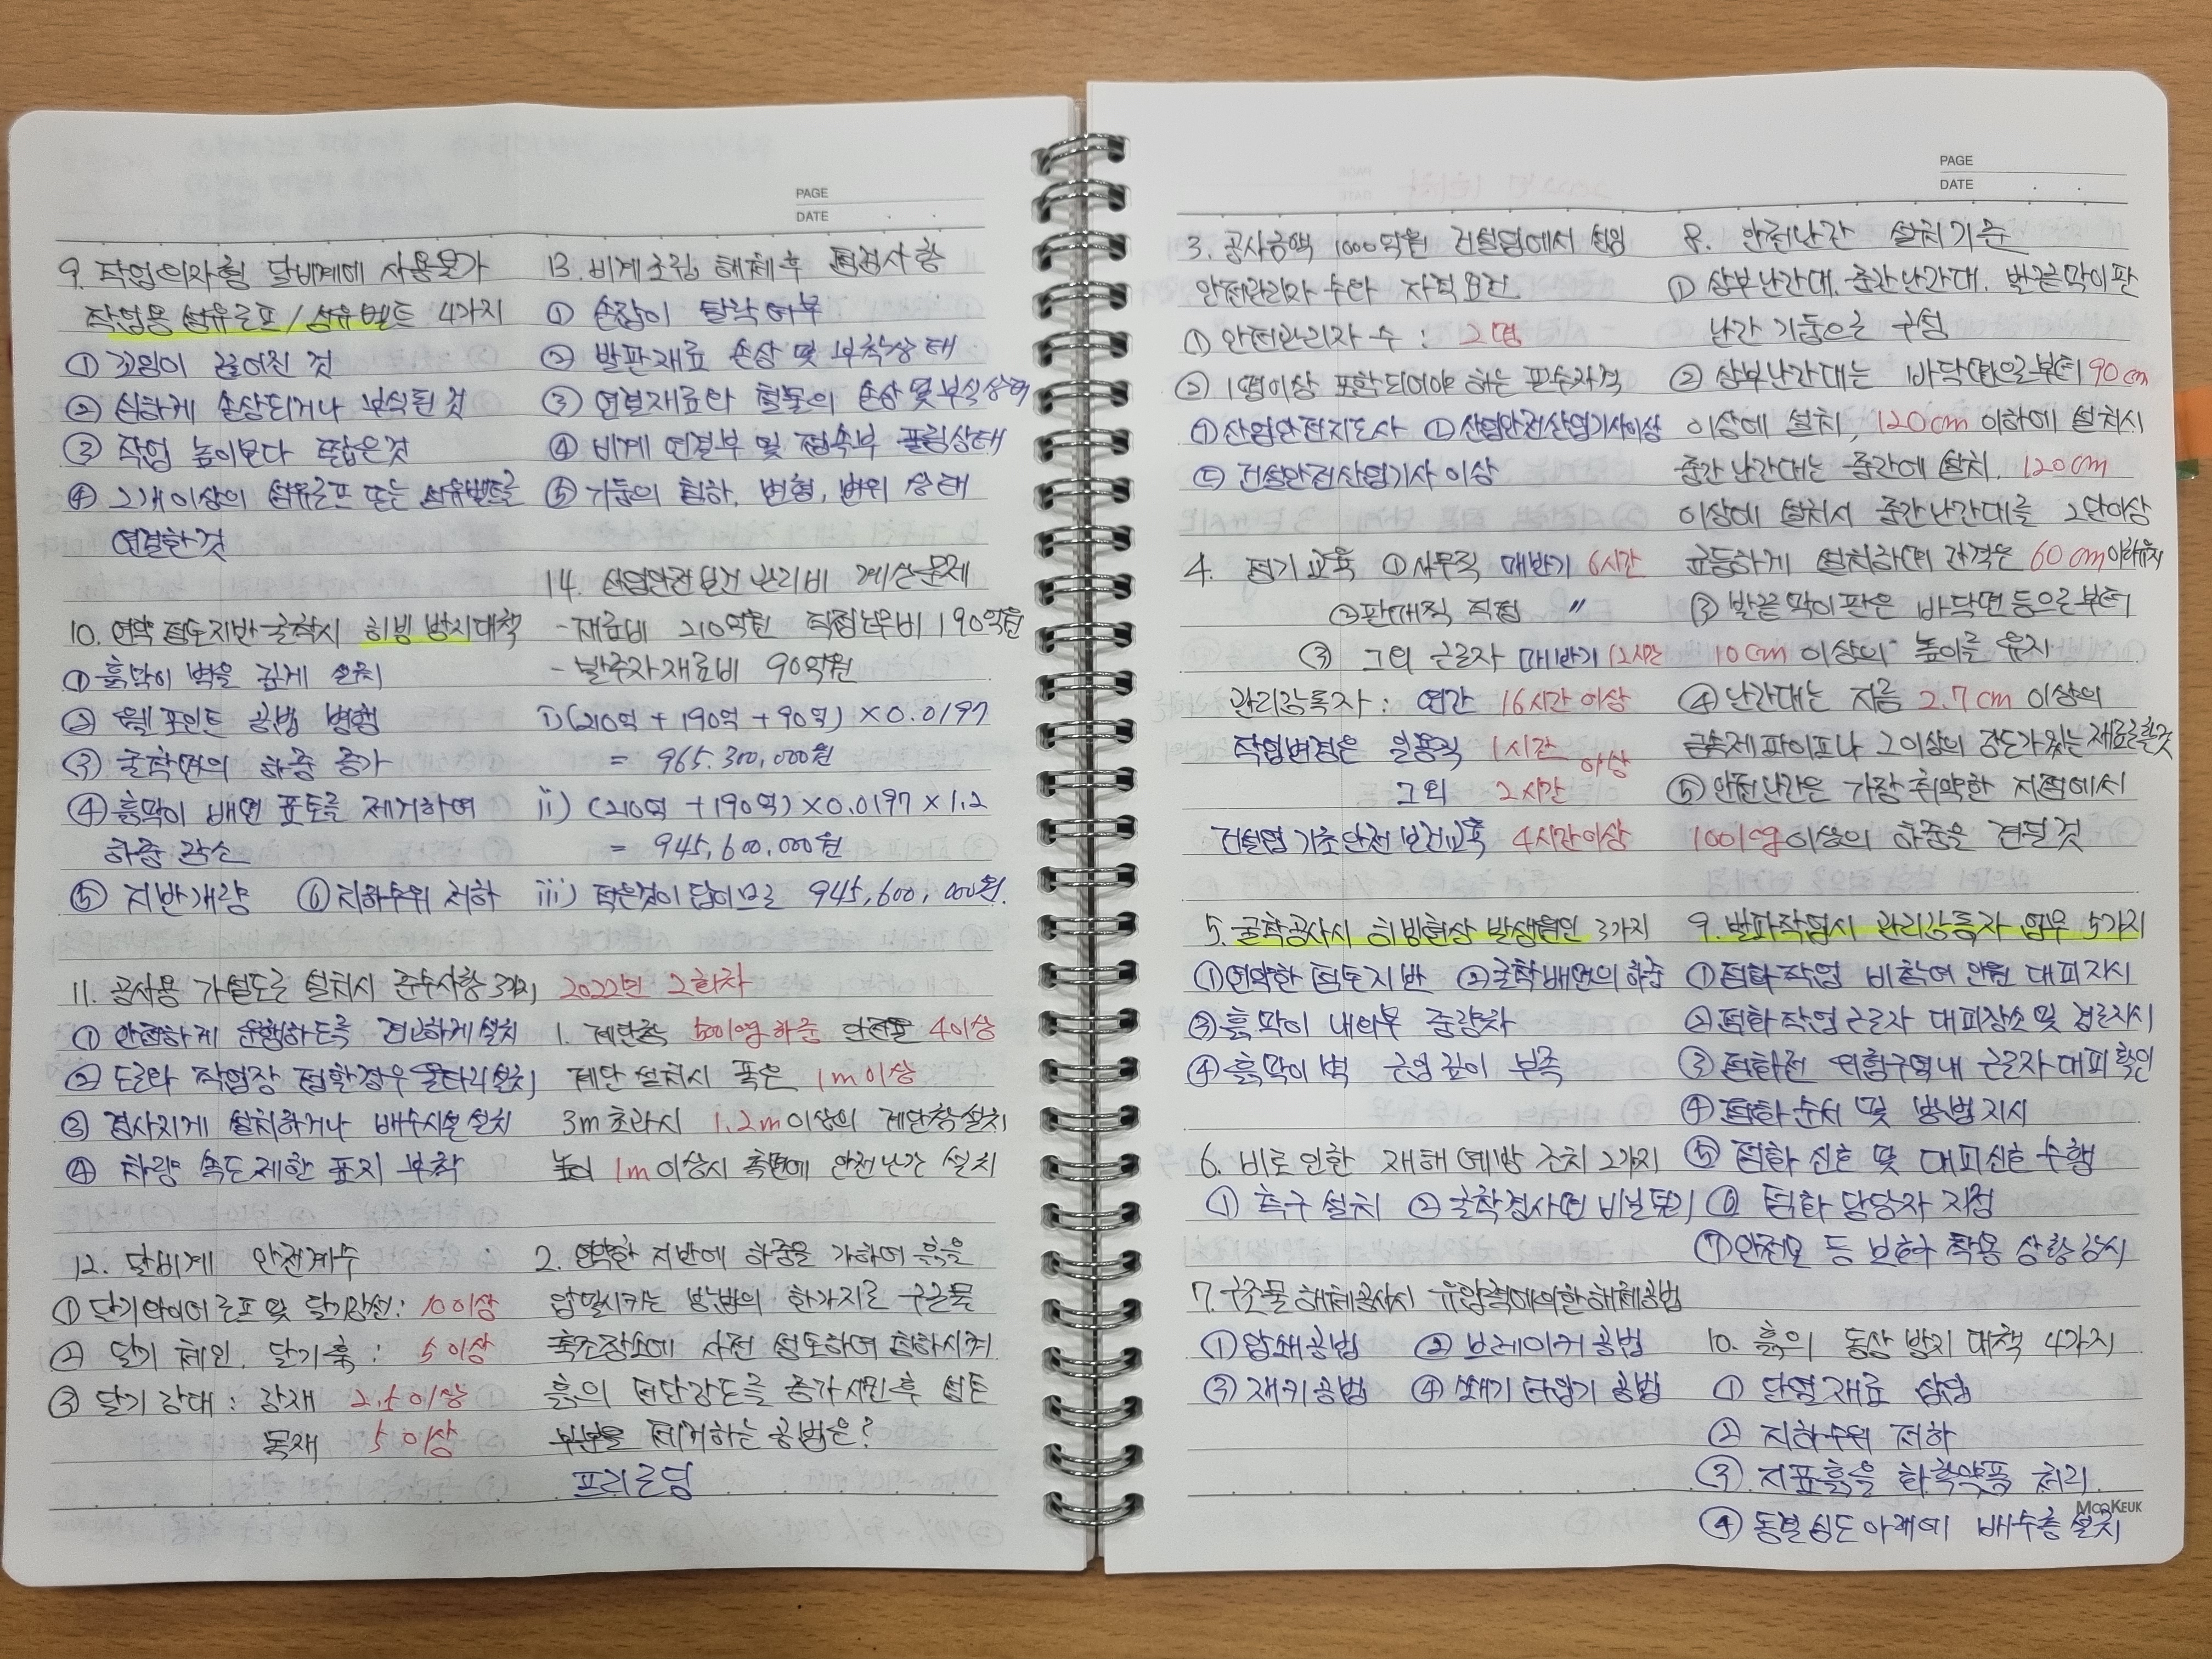 PAGE
DATE
9. 작업의자형 달비계에 사용불가
작업용 섬유로프/섬유벨트 4가지
① 꼬임이 끊어진 것
② 심하게 손상되거나 부식된 것
③ 작업 높이보다 짧은것
④ 2개이상의 섬유로프 또는 섬유벨트를
연결한것
10. 연약 점토지반 굴착시 히빙 방지대책
① 흙막이 벽을 깊게 설치
② 웰 포인트 공법 병행
③ 굴착면의 하중 증가
④ 흙막이 배면 표토를 제거하여
하중 감소
⑤ 지반개량 ⑥ 지하수위 저하
11. 공사용 가설도로 설치시 준수사항 3가지
① 안전하게 운행하도록 견고하게 설치
② 도로와 작업장 접할경우 울타리설치
③ 경사지게 설치하거나 배수시설 설치
④ 차량 속도제한 표지 부착
12. 달비계 안전계수
① 달기와이어로프 및 달기강선 : 10이상
② 달기 체인, 달기훅 : 5이상
③ 달기 강대 : 강재 2.5이상
목재 5이상
13. 비계조립 해체후 점검사항
① 손잡이 탈락여부
② 발판재료 손상 및 부착상태
③ 연결재료와 철물의 손상 및 부식상태
④ 비계 연결부 및 접속부 풀림상태
⑤ 기둥의 침하, 변형, 변위 상태
14. 산업안전보건관리비 계산문제
- 재료비 210억원 직접노무비 190억원
- 발주자재료비 90억원
i) (210억 + 190억 + 90억) × 0.0197
= 965,300,000원
ii) (210억 + 190억) × 0.0197 × 1.2
= 945,600,000원
iii) 적은것이 답이므로 945,600,000원.
2022년 2회차
1. 계단참 500kg 하중 안전율 4이상
계단 설치시 폭은 1m이상
3m초과시 1.2m이상의 계단참설치
높이 1m이상시 측면에 안전난간 설치
2. 연약한 지반에 하중을 가하여 흙을
압밀시키는 방법의 한가지로 구조물
축조장소에 사전 성토하여 침하시켜
흙의 전단강도를 증가시킨후 성토
부분을 제거하는 공법은?
프리로딩
PAGE
DATE
3. 공사금액 1000억원 건설업에서 선임
안전관리자 수와 자격요건
① 안전관리자 수 : 2명
② 1명이상 포함되어야 하는 필수자격
㉠ 산업안전지도사 ㉡ 산업안전산업기사이상
㉢ 건설안전산업기사 이상
4. 정기교육 ① 사무직 매반기 6시간
② 판매직 직접 〃
③ 그외 근로자 매반기 12시간
관리감독자 : 연간 16시간 이상
작업변경은 일용직 1시간 이상
그외 2시간
건설업 기초안전보건교육 4시간이상
5. 굴착공사시 히빙현상 발생원인 3가지
① 연약한 점토지반 ② 굴착배면의 하중
③ 흙막이 내외부 중량차
④ 흙막이 벽 근입깊이 부족
6. 비로 인한 재해예방 조치 2가지
① 측구 설치 ② 굴착경사면 비닐덮기
7. 구조물 해체공사시 유압력에의한 해체공법
① 압쇄공법 ② 브레이커 공법
③ 재키공법 ④ 쐐기 타입기 공법
8. 안전난간 설치기준
① 상부난간대, 중간난간대, 발끝막이판
난간 기둥으로 구성
② 상부난간대는 바닥면으로부터 90cm
이상에 설치, 120cm 이하에 설치시
중간 난간대는 중간에 설치. 120cm
이상에 설치시 중간난간대를 2단이상
균등하게 설치하며 간격은 60cm이하유지
③ 발끝 막이판은 바닥면 등으로부터
10cm 이상의 높이를 유지
④ 난간대는 지름 2.7cm 이상의
금속제파이프나 그이상의 강도가있는 재료로할것
⑤ 안전난간은 가장 취약한 지점에서
100kg이상의 하중을 견딜 것
9. 발파작업시 관리감독자 업무 5가지
① 점화작업 비참여 인원 대피지시
② 점화작업 근로자 대피장소 및 경로지시
③ 점화전 위험구역내 근로자 대피 확인
④ 점화순서 및 방법지시
⑤ 점화 신호 및 대피신호 수행
⑥ 점화 담당자 지정
⑦ 안전모 등 보호구 착용 상황 감시
10. 흙의 동상 방지 대책 4가지
① 단열재료 삽입
② 지하수위 저하
③ 지표흙을 화학약품 처리
④ 동결심도 아래에 배수층 설치
MOOKEUK